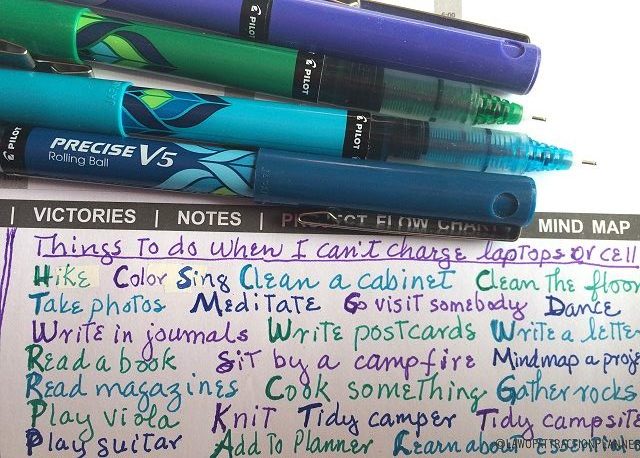 PILOT
PILOT
PILOT
PILOT PRECISE V5
Rolling Ball
| VICTORIES | NOTES | PROJECT FLOW CHART | MIND MAP
Things To do when I can't charge laptops or cell
Hike Color Sing Clean a cabinet Clean the floor
Take photos Meditate Go visit somebody Dance
Write in journals Write postcards Write a lette
Read a book Sit by a campfire Mindmap a proj
Read magazines Cook something Gather rocks
Play viola Knit Tidy camper Tidy campsite
Play guitar Add to Planner Learn about Essential
©LAWOFATTRACTIONPLANNER